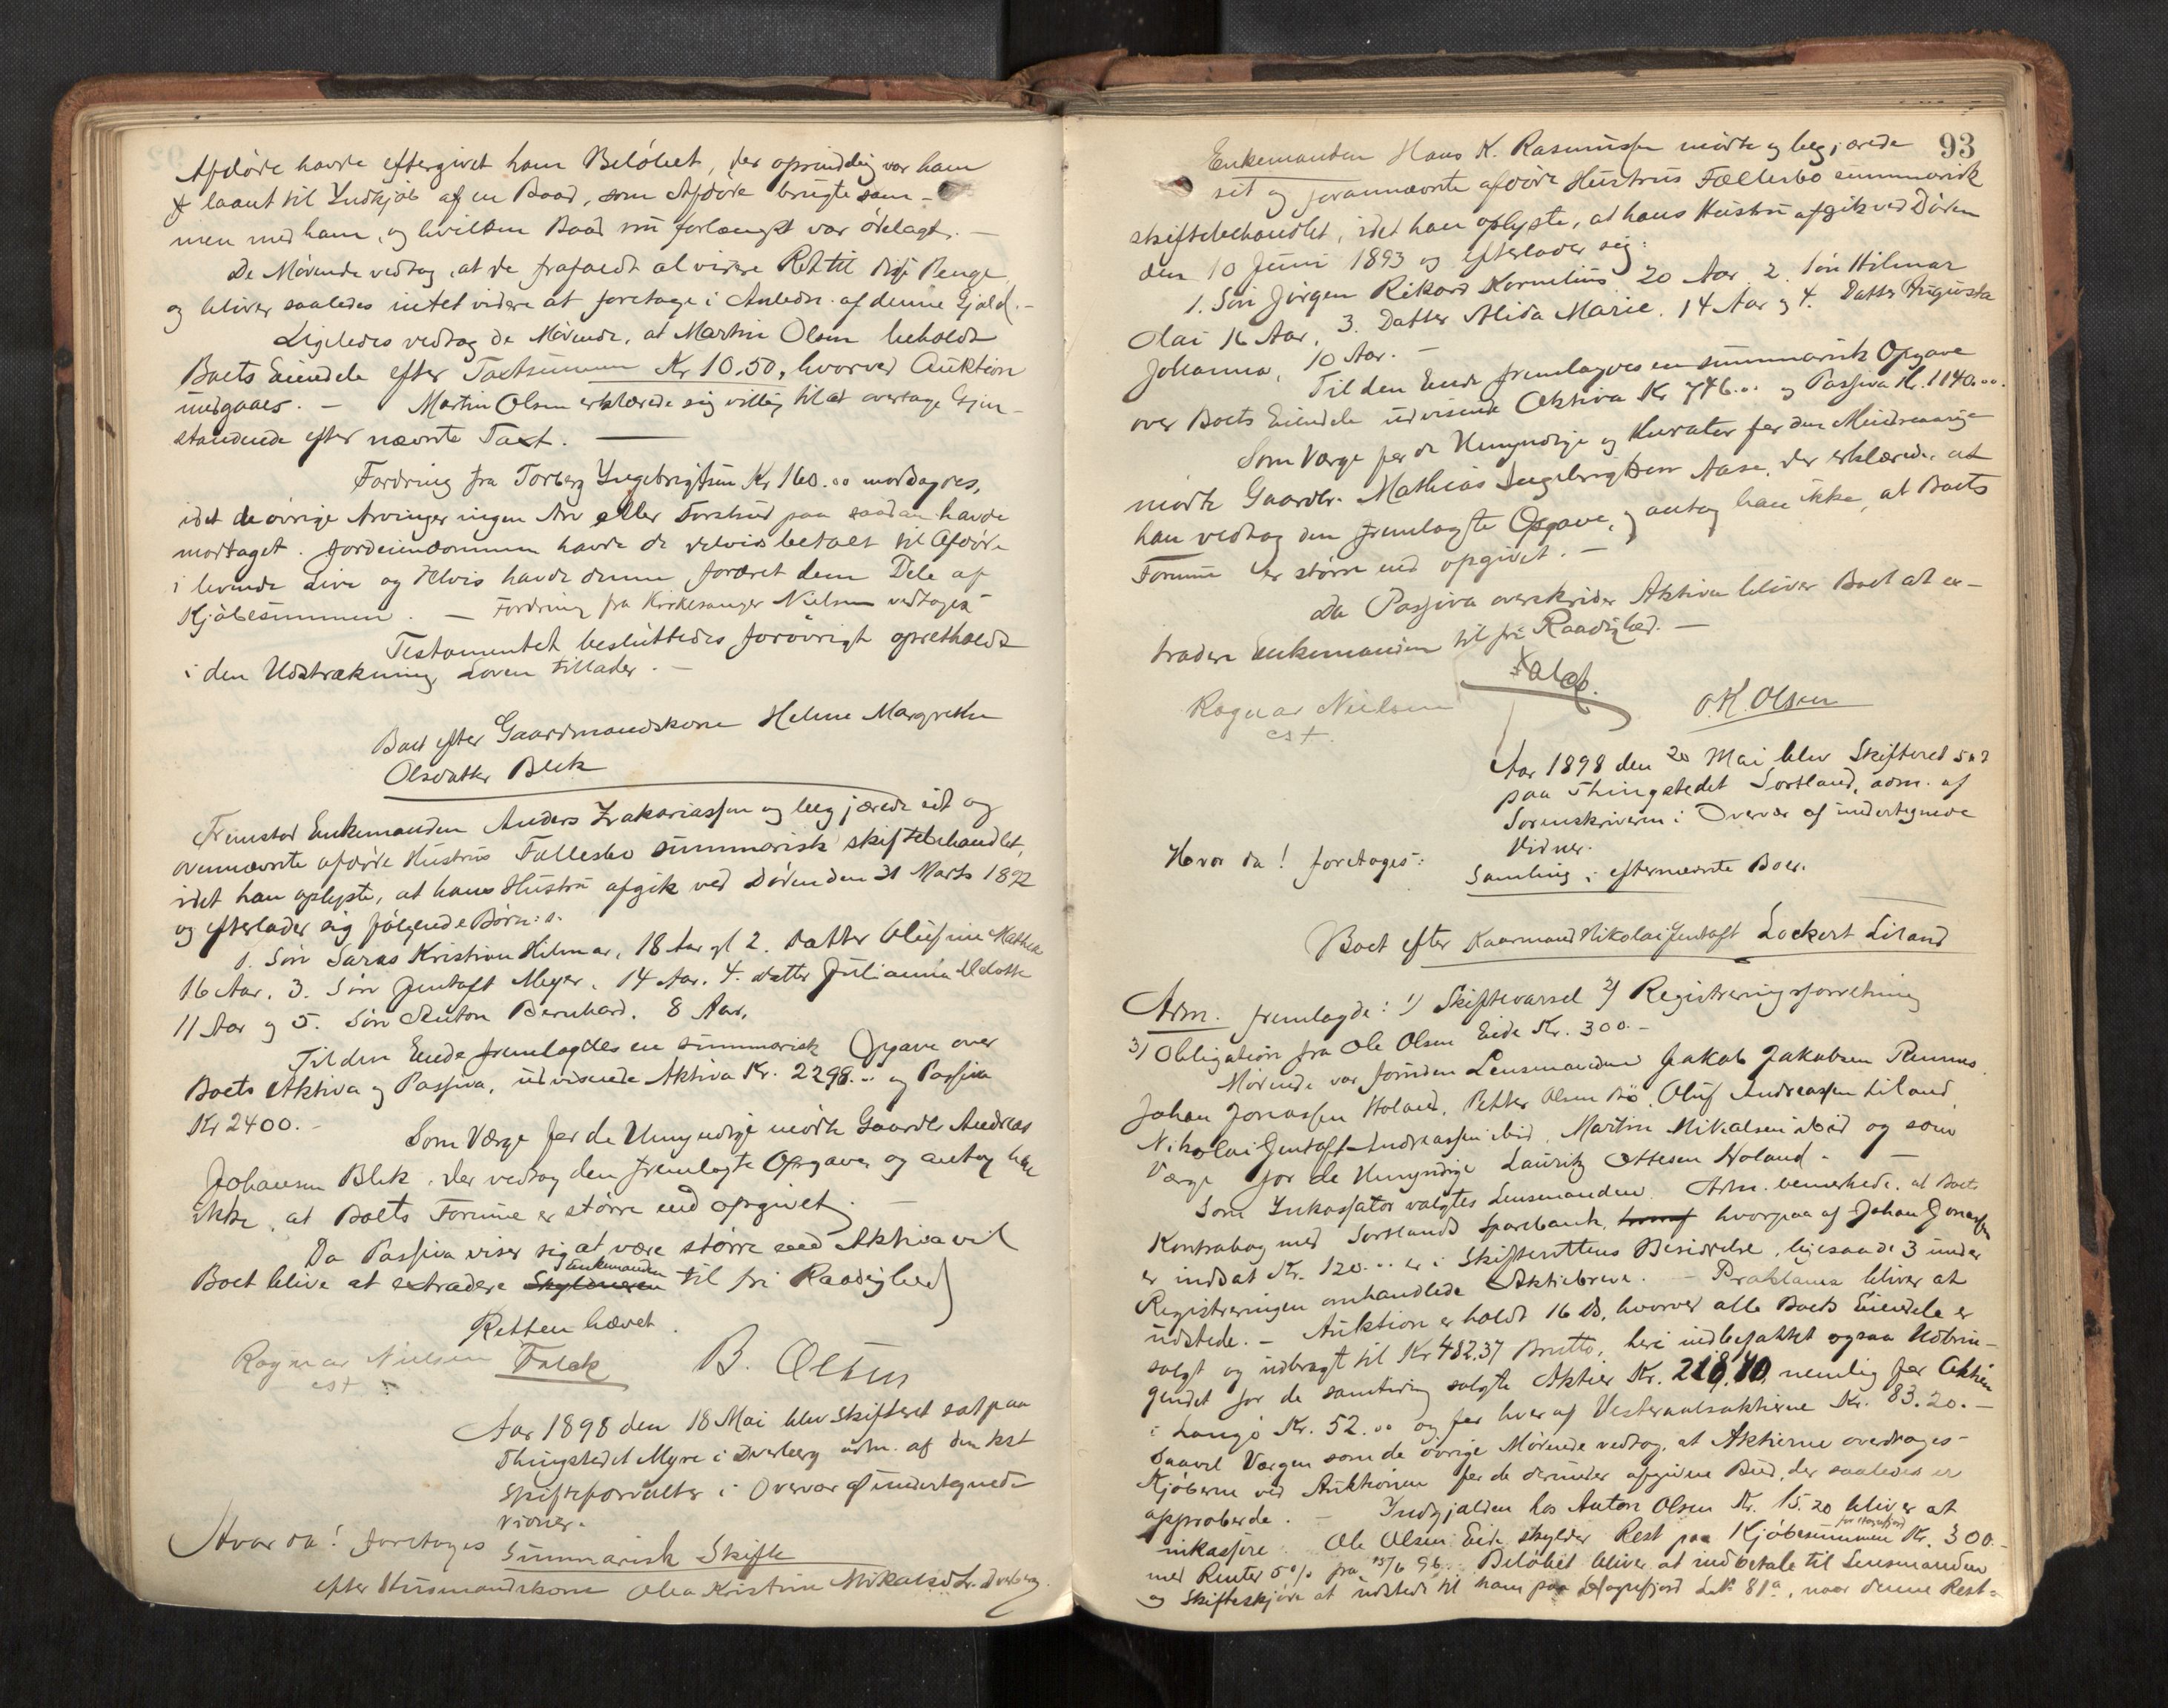 Afdøde havde eftergivet ham Beløbet, der oprindelig var ham
laant til Indkjøb af en Baad, som Afdøde brugte sam-
men med ham, og hvilken Baad nu forlængst var ødelagt. -
De Mødende vedtog, at de frafaldt al videre Ret til disse Penge,
og bliver saaledes intet videre at foretage i Anledn. af denne Gjæld. -
Ligeledes vedtog de Mødende, at Martin Olsen beholdt
Boets Eiendele efter Taxtsummen Kr 10,50, hvorved Auktion
undgaaes. - Martin Olsen erklærede sig villig til at overtage Gjen-
standende efter nævnte Taxt. -
Fordring fra Torberg Ingebrigtsen Kr 160.00 modtages,
idet de øvrige Arvinger ingen Arv eller Forskud paa saadan havde
modtaget. Jordeiendommen havde de delvis betalt til Afdøde
i levende Live og delvis havde denne foræret dem Dele af
Kjøbesummen. - Fordring fra Kirkesanger Nielsen vedtoges
Testamentet besluttedes forøvrigt opretholdt
i den Udstrækning Loven tillader. -
Boet efter Gaardmandskone Heline Margrethe
Olsdatter Blek
Fremstod Enkemanden Anders Zakariassen og begjærede sit og
ovennævnte afdøde Hustrus Fællesbo summarisk skiftebehandlet,
idet han oplyste, at hans Hustru afgik ved Døden den 31 Marts 1892
og efterlader sig følgende Børn:
1. Søn Saras Kristian Hilmar, 18 Aar gl 2. Datter Olufine Mathea
16 Aar. 3. Søn Jentoft Meyer, 14 Aar. 4. Datter Julianna
11 Aar og 5. Søn Anton Bernhard. 8 Aar.
Til den Ende fremlagdes en summarisk Opgave over
Boets Aktiva og Passiva, udvisende Aktiva Kr. 2298... og Passiva
Kr 2400. -
Som Værge for de Umyndige mødte Gaardbr. Andreas
Johansen Blek, der vedtog den fremlagte Opgave og antog han
ikke, at Boets Formue er større end opgivet. -
Da Passiva viser sig at være større end Aktiva vil
Enkemanden
Boet blive at extradere Skyldneren til fri Raadighed
Retten hævet.
Ragnar Nielsen Falck B. Olsen
cst
Aar 1898 den 18 Mai blev Skifteret sat paa
Thingstedet Myre i Dverberg adm. af den kst
Skifteforvalter i Overvær af undertegnede
Vidner.
Hvor da! foretages
Summarisk Skifte
efter Husmandskone Olea Kristine Mikalsdtr. Dverberg.
93
Enkemanden Hans K. Rasmussen mødte og begjærede
sit og forannævnte afdøde Hustrus Fællesbo summarisk
skiftebehandlet, idet han oplyste, at hans Hustru afgik ved Døden
den 10 Juni 1893 og efterlader sig:
1. Søn Jørgen Rikard Kornelius 20 Aar 2. Søn Hilmar
Olai 16 Aar, 3. Datter Alida Marie. 14 Aar og 4. Datter Augusta
Johanna, 10 Aar. -
Til den Ende fremlagdes en summarisk Opgave
over Boets Eiendele udvisende Aktiva Kr 746... og Passiva Kr. 1140.00.
Som Værge for de Umyndige og Kurator for den Mindreaarige
mødte Gaardbr. Mathias Ingebrigtsen Aase, der erklærede, at
han vedtog den fremlagte Opgave, og antog han ikke, at Boets
Formue er større end opgivet. -
Da Passiva overskrider Aktiva bliver Boet at ex-
tradere Enkemanden til fri Raadighed. -
Falck.
Ragnar Nielsen O. K. Olsen
cst.
Aar 1898 den 20 Mai blev Skifteret sat
paa Thingstedet Sortland, adm. af
Sorenskriveren i Overvær af undertegnede
Vidner.
Hvor da! foretages:
Samling i efternævnte Boer.
Boet efter Kaarmand Nikolai Jentoft Lockert Liland
Adm. fremlagde: 1) Skiftevarsel 2) Registreringsforretning
3) Obligation fra Ole Olsen Eide Kr. 300. -
Mødende var foruden Lensmanden Jakob Jakobsen Rennes.
Johan Jonassen Holand, Petter Olsen Bø, Oluf Andreassen Liland,
Nikolai Jentoft Andreassen ibid, Martin Mikalsen ibid og som
Værge for de Umyndige Lauritz Ottesen Holand. -
Som Inkassator valgtes Lensmanden. Adm. bemerkede, at Boets
Kontrabog med Sortlands Sparebank, hvorpaa af Johan Jonassen
er indsat Kr. 120... er i Skifterettens Besiddelse, ligesaa de 3 under
Registreringen omhandlede Aktiebreve. - Proklama bliver at
udstede. - Auktion er holdt 16 ds, hvorved alle Boets Eiendele er
solgt og udbragt til Kr 482.37 Brutto, heri indbefattet ogsaa Udbrin-
gendet for de samtidig solgte Aktier Kr. 218,40, nemlig for Aktien
i Langø Kr. 52.00 og for hver af Vesteraalsaktierne Kr. 83.20. -
Saavel Værgen som de øvrige Mødende vedtog, at Aktierne overdrages
Kjøberne ved Auktionen for de derunder afgivne Bud, der saaledes er
approberede. - Indgjælden hos Anton Olsen Kr. 15.20 bliver at
inkassere. Ole Olsen Eide skylder Rest paa Kjøbesummen Kr. 300.-
med Renter 5% fra 96. Beløbet bliver at indbetale til Lensmanden
og Skifteskjøde at udstede til ham paa Hognfjord L№ 81a, naar denne Rest-